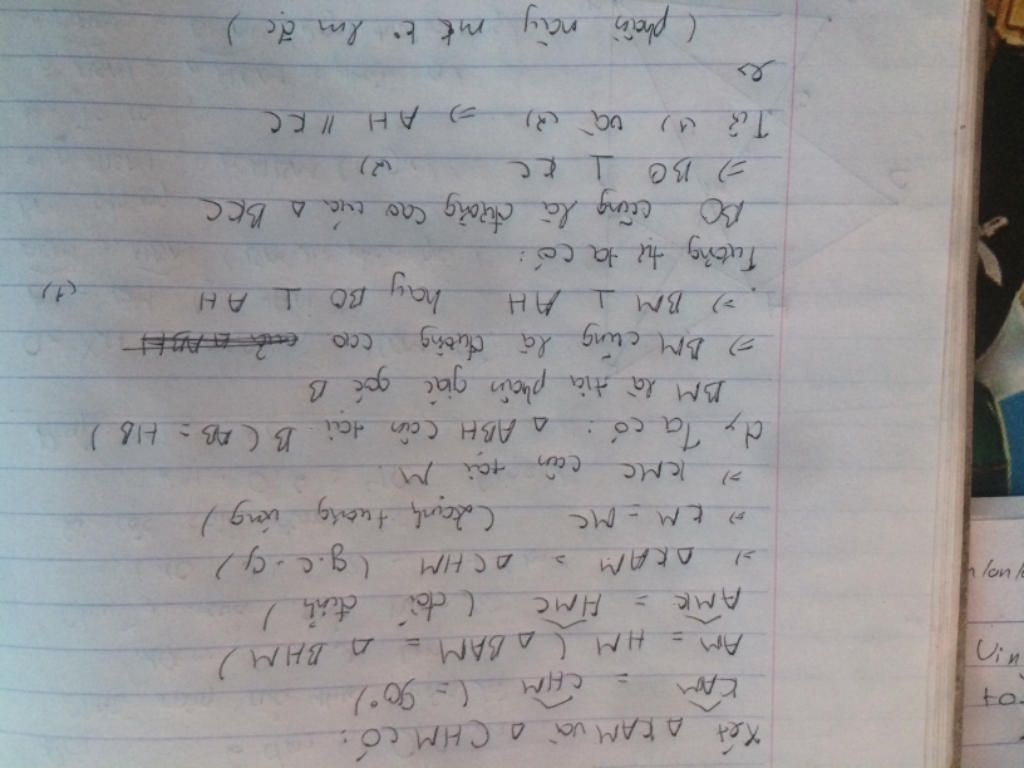 Xét Δ KAM và Δ CHM có:
KAM = CHM (= 90°)
AM = HM ( Δ BAM = Δ BHM )
AMK = HMC ( đối đỉnh )
=> Δ KAM = Δ CHM ( g.c - g )
=> KM = MC ( cạnh tương ứng )
=> KMC cân tại M
d, Ta có : Δ ABH cân tại B ( AB = HB )
BM là tia phân giác góc B
=> BM cũng là đường cao của Δ ABH
=> BM ⊥ AH hay BO ⊥ AH (1)
Tương tự ta có :
BO cũng là đường cao của Δ BKC
=> BO ⊥ KC (2)
Từ (1) và (2) => AH // KC
e>
( phần này mk k° lm đc )
Uin
to